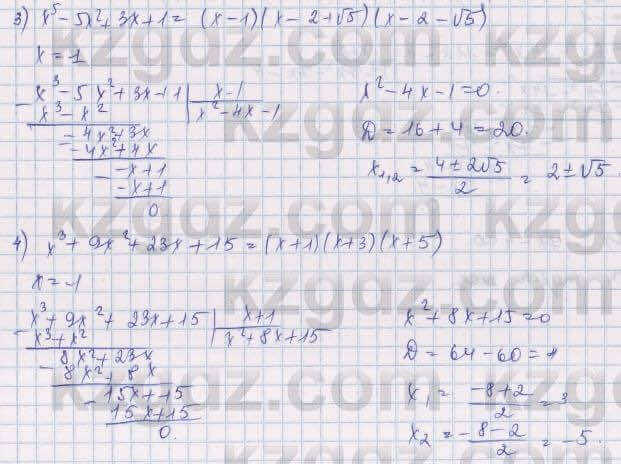 3) x⁵ - 5x² + 3x + 1 = (x - 1)(x - 2 + √5)(x - 2 - √5)
x = 1
x³ - 5x² + 3x + 1 | x - 1
- x³ - x² | x² - 4x - 1
- 4x² + 3x
- - 4x² + 4x
- x + 1
- - x + 1
0
x² - 4x - 1 = 0.
D = 16 + 4 = 20.
x₁,₂ = (4 ± 2√5)/2 = 2 ± √5.
4) x³ + 9x² + 23x + 15 = (x + 1)(x + 3)(x + 5)
x = -1
x³ + 9x² + 23x + 15 | x + 1
- x³ + x² | x² + 8x + 15
8x² + 23x
- 8x² + 8x
15x + 15
- 15x + 15
0.
x² + 8x + 15 = 0
D = 64 - 60 = 4
x₁ = (-8 + 2)/2 = 3
x₂ = (-8 - 2)/2 = -5.
kzgdz.com